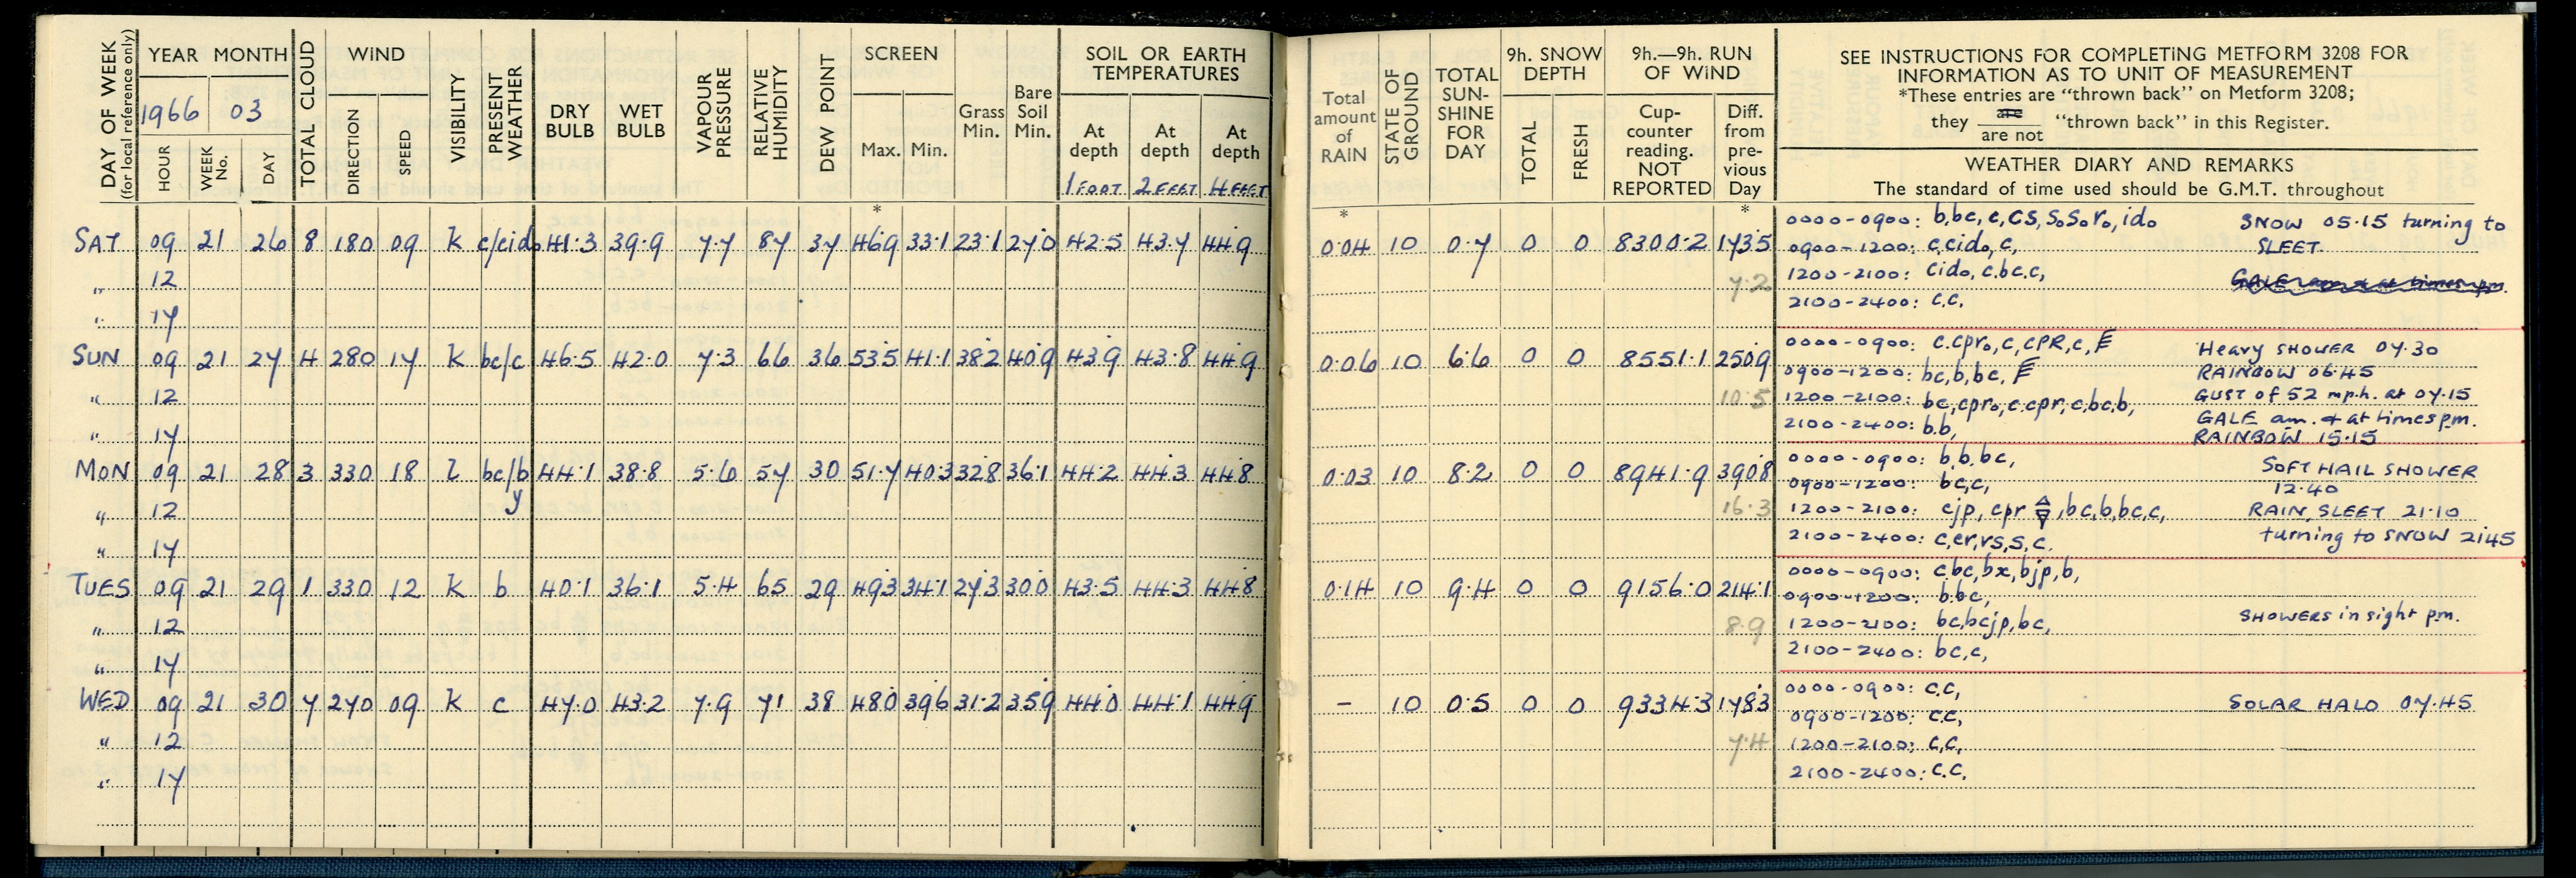 DAY OF WEEK (for local reference only)
YEAR MONTH
1966 03
HOUR WEEK No. DAY
TOTAL CLOUD
WIND
DIRECTION SPEED
VISIBILITY
PRESENT WEATHER
DRY BULB
WET BULB
VAPOUR PRESSURE
RELATIVE HUMIDITY
DEW POINT
SCREEN
Max. Min.
Grass Min.
Bare Soil Min.
SOIL OR EARTH TEMPERATURES
At depth At depth At depth
1 FOOT 2 FEET 4 FEET
Total amount of RAIN
STATE OF GROUND
TOTAL SUN-SHINE FOR DAY
9h. SNOW DEPTH
TOTAL FRESH
9h.—9h. RUN OF WIND
Cup-counter reading. NOT REPORTED
Diff. from pre-vious Day
SEE INSTRUCTIONS FOR COMPLETING METFORM 3208 FOR
INFORMATION AS TO UNIT OF MEASUREMENT
*These entries are "thrown back" on Metform 3208;
they are / are not "thrown back" in this Register.
WEATHER DIARY AND REMARKS
The standard of time used should be G.M.T. throughout
* * *
SAT 09 21 26 8 180 09 k c/cido 41·3 39·9 7·7 87 37 46·9 33·1 23·1 27·0 42·5 43·7 44·9 0·04 10 0·7 0 0 8300·2 173·5
0000-0900: b,bc,c,cs,s₀s₀r₀,id₀ SNOW 05·15 turning to
0900-1200: c,cid₀,c, SLEET
" 12 7·2
1200-2100: cid₀,c,bc,c, GALE am & at times pm.
" 17
2100-2400: c.c.
SUN 09 21 27 4 280 17 k bc/c 46·5 42·0 7·3 66 36 53·5 41·1 38·2 40·9 43·9 43·8 44·9 0·06 10 6·6 0 0 8551·1 250·9
0000-0900: c.cpr₀,c,cPR,c, Heavy SHOWER 07·30
0900-1200: bc,b,bc, RAINBOW 06·45
" 12 10·5
1200-2100: bc,cpr₀,c.cpr,c,bc,b, GUST of 52 m.p.h. at 07·15
" 17
2100-2400: b.b, GALE am. & at times pm.
RAINBOW 15·15
MON 09 21 28 3 330 18 l bc/b y 44·1 38·8 5·6 57 30 51·7 40·3 32·8 36·1 44·2 44·3 44·8 0·03 10 8·2 0 0 8941·9 390·8
0000-0900: b,b,bc, SOFT HAIL SHOWER
0900-1200: bc,c, 12·40
" 12 16·3
1200-2100: cjp, cpr ,bc,b,bc,c, RAIN, SLEET 21·10
" 17
2100-2400: c,er,rs,s,c. turning to SNOW 2145
TUES 09 21 29 1 330 12 k b 40·1 36·1 5·4 65 29 49·3 34·1 27·3 30·0 43·5 44·3 44·8 0·14 10 9·4 0 0 9156·0 214·1
0000-0900: c,bc,bx,bjp,b,
0900-1200: b.bc,
" 12 8·9
1200-2100: bc,bcjp,bc, SHOWERS in sight pm.
" 17
2100-2400: bc,c,
WED 09 21 30 7 270 09 k c 47·0 43·2 7·9 71 38 48·0 39·6 31·2 35·9 44·0 44·1 44·9 – 10 0·5 0 0 9334·3 178·3
0000-0900: c.c, SOLAR HALO 07·45
0900-1200: c.c,
" 12 7·4
1200-2100: c,c,
" 17
2100-2400: c.c.